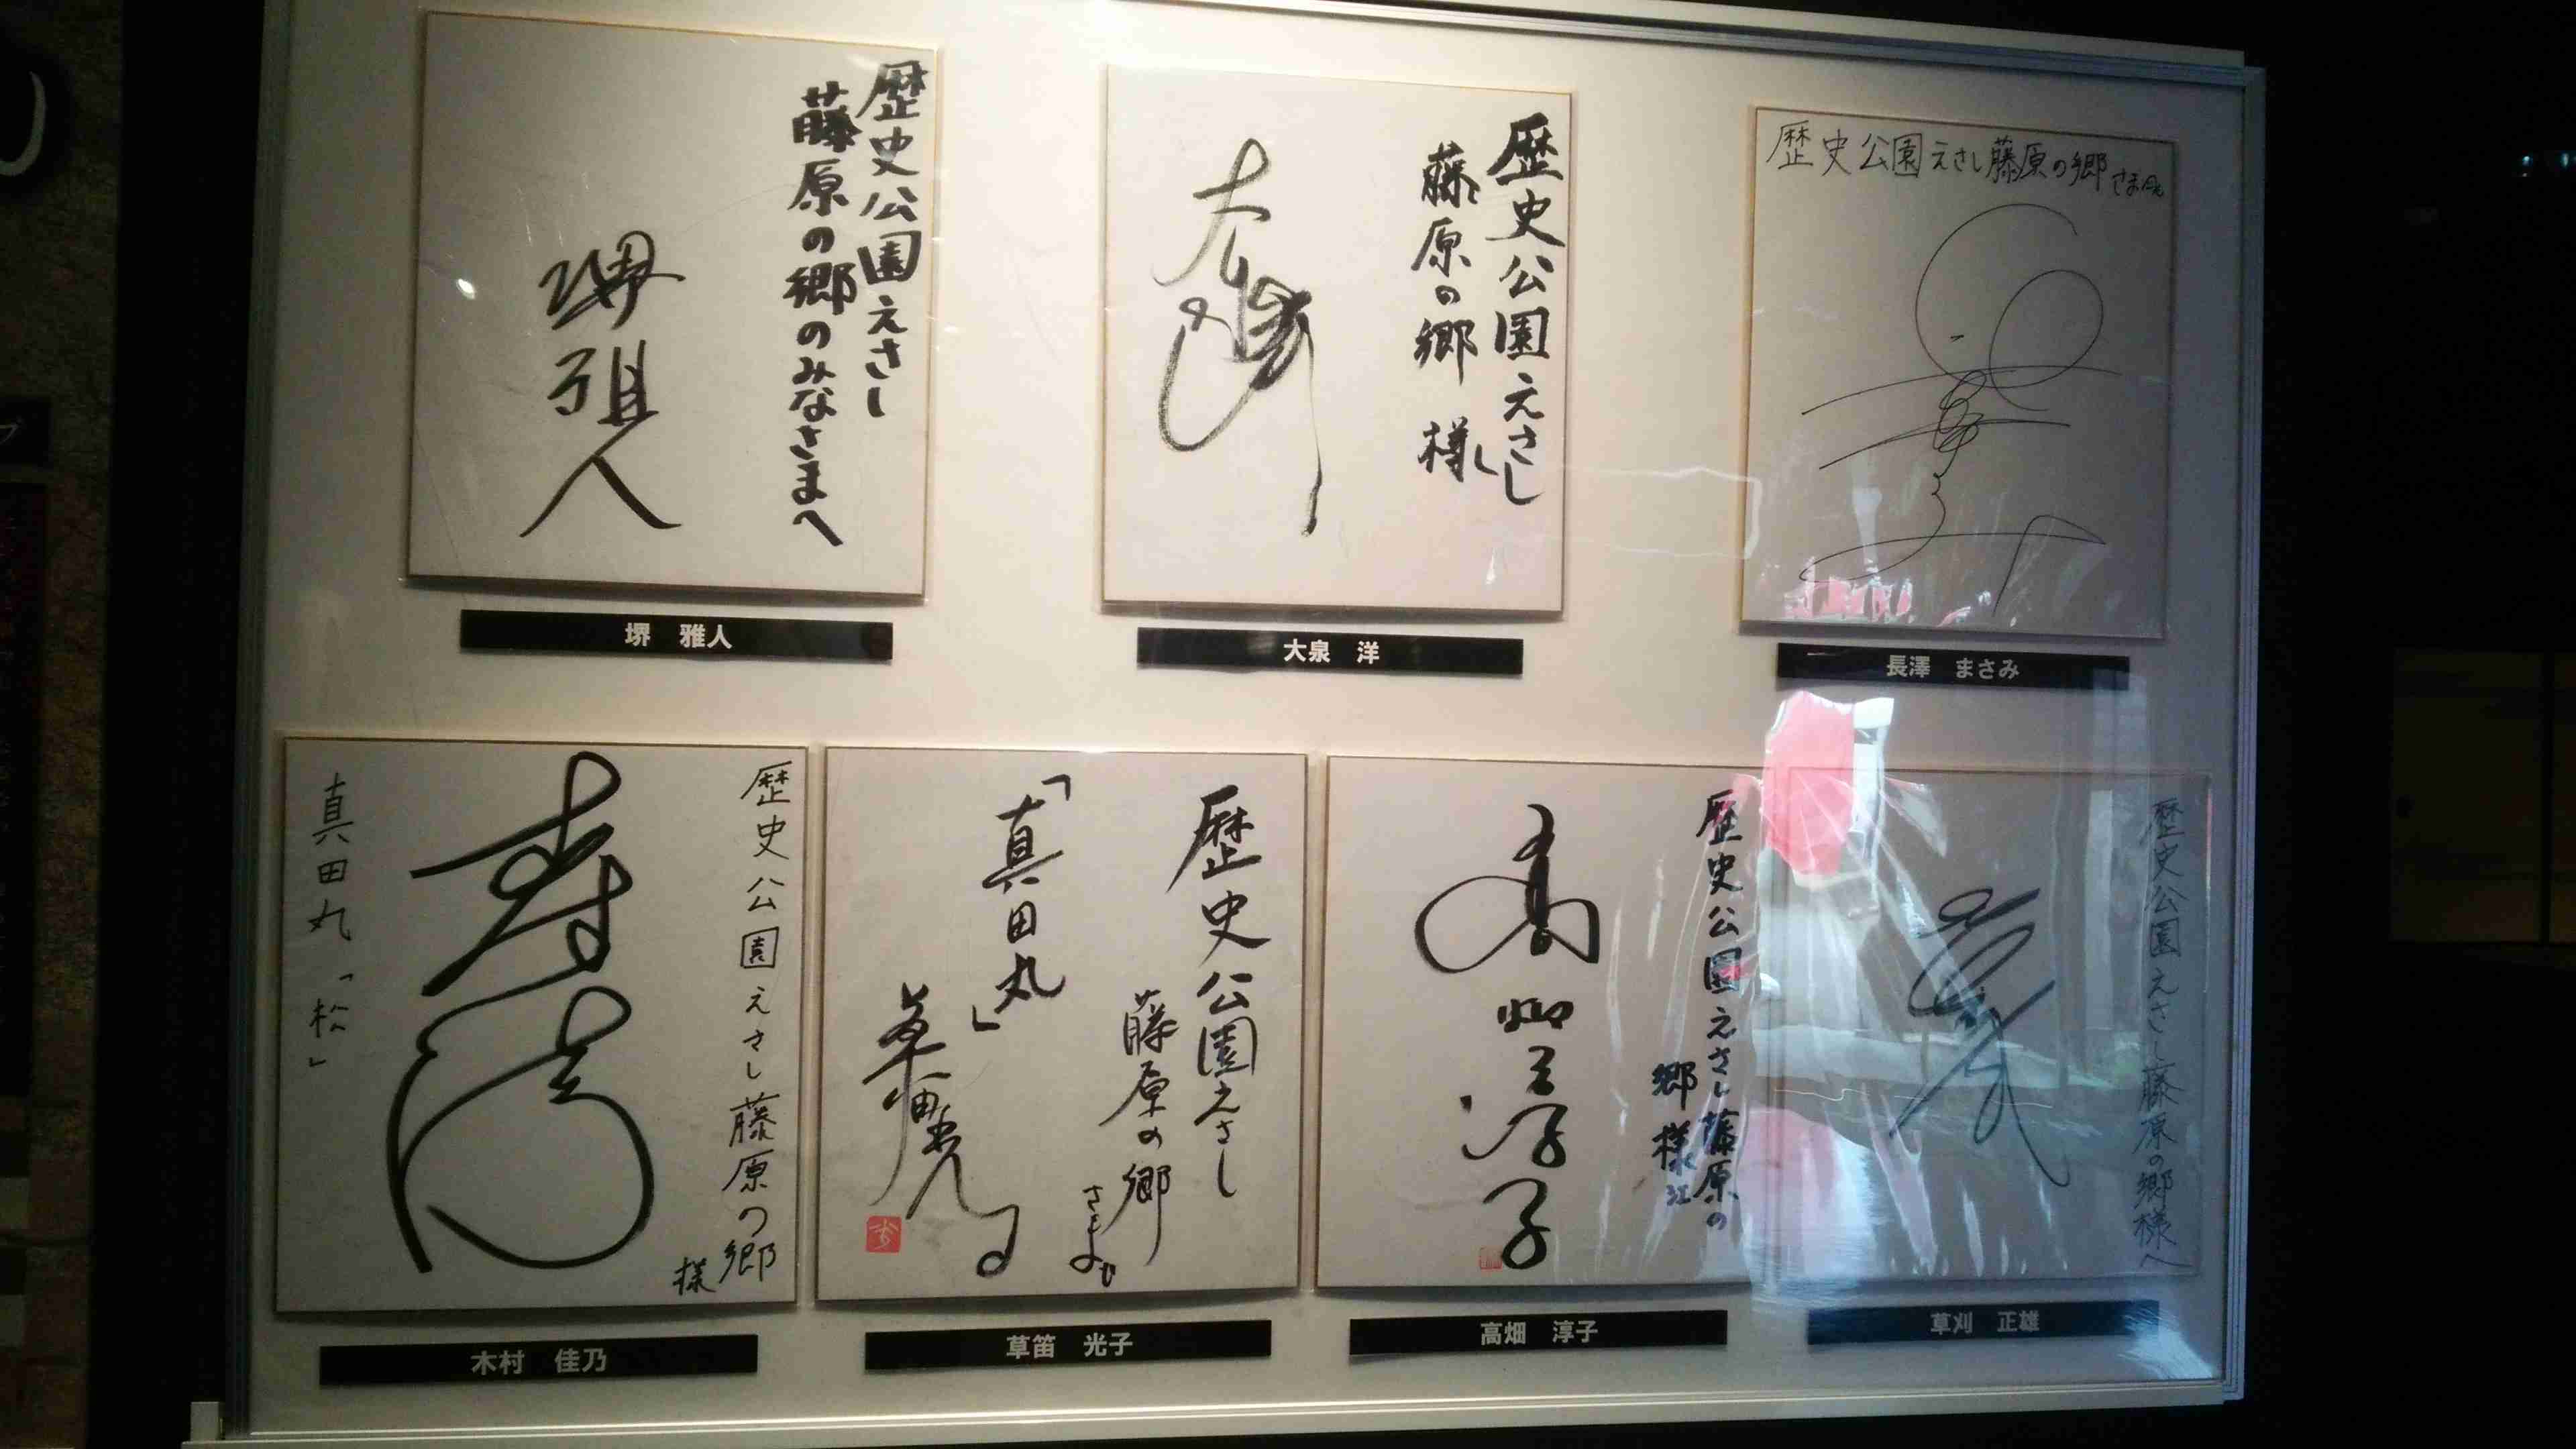 歴史公園えさし
藤原の郷のみなさまへ
堺雅人
堺 雅人
歴史公園えさし
藤原の郷 様
大泉洋
大泉 洋
歴史公園えさし藤原の郷さま
長澤 まさみ
歴史公園えさし藤原の郷
様
真田丸「松」
木村 佳乃
歴史公園えさし
藤原の郷
さま
「真田丸」
草笛光子
草笛 光子
歴史公園えさし藤原の
郷様江
高畑淳子
高畑 淳子
歴史公園えさし藤原の郷様へ
草刈 正雄